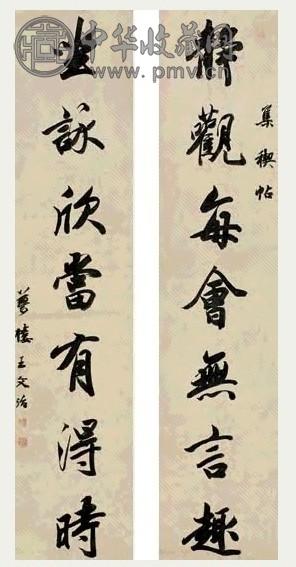 中华收藏网
www.pmv.cn
集禊帖
靜觀每會無言趣
坐詠欣當有得時
夢樓王文治